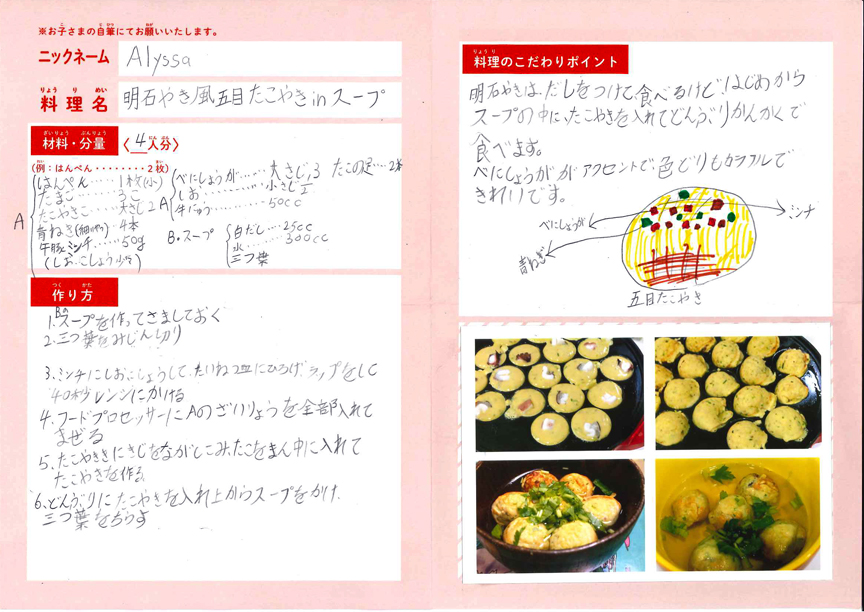 ※お子さまの自筆にてお願いいたします。
ニックネーム Alyssa
料理名 明石やき風五目たこやきinスープ
材料・分量 〈4人分〉
(例:はんぺん・・・・・・・・2枚)
A
はんぺん……1枚(小)
たまご……3こ
たこやきこ……大さじ2
青ねぎ……4本
牛豚ミンチ……50g
(しお、こしょう少々)
A
べにしょうが……大さじ3
たこの足……2本
しお……小さじ
牛にゅう……50cc
B・スープ
白だし…25cc
水……300cc
三つ葉
作り方
1. Bのスープを作ってさましておく
2. 三つ葉をみじん切り
3. ミンチにしお、こしょうして、たいねつ皿にひろげ、ラップをして
40秒レンジにかける
4. フードプロセッサーにAのざいりょうを全部入れて
まぜる
5. たこやききにきじをながしこみ、たこをまん中に入れて
たこやきを作る
6. どんぶりにたこやきを入れ上からスープをかけ、
三つ葉をちらす
料理のこだわりポイント
明石やきは、だしをつけて、食べるけど、はじめから
スープの中に、たこやきを入れてどんぶりかんかくで
食べます。
べにしょうががアクセントで、色どりもカラフルで
きれいです。
べにしょうが
ミンチ
青ねぎ
五目たこやき